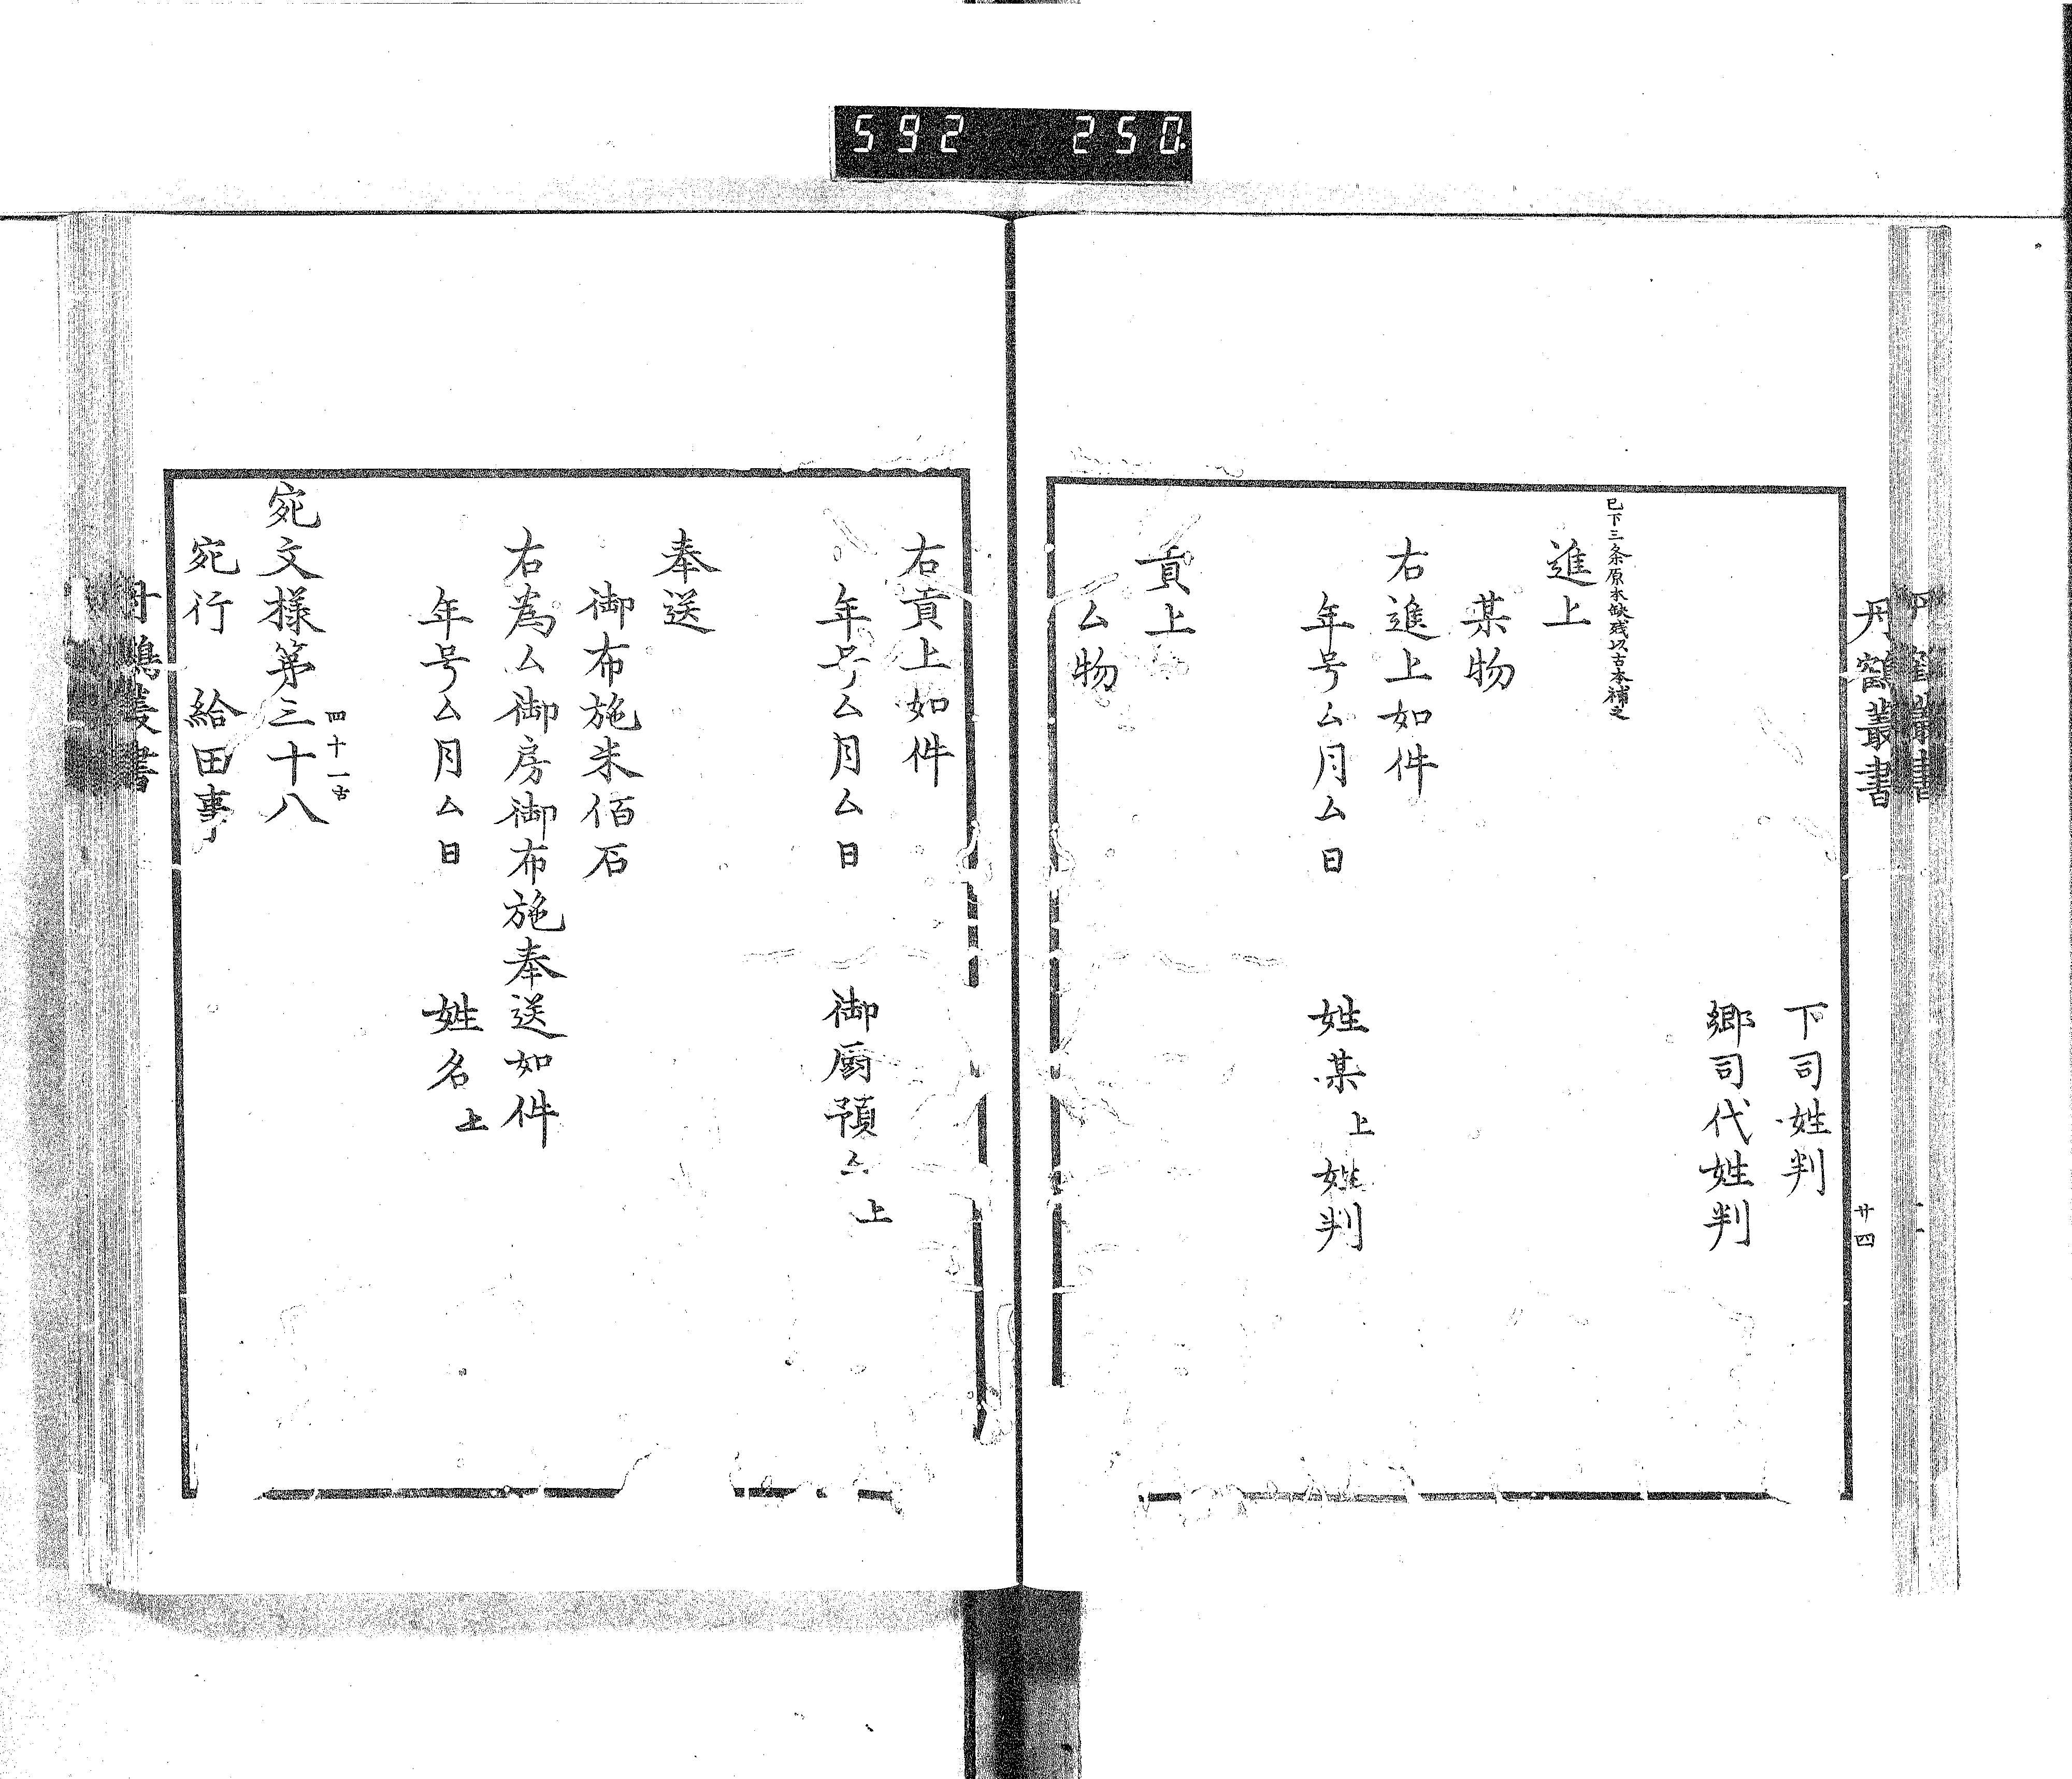 592 250
丹鶴叢書
廿四
下司姓判
郷司代姓判
已下三条原本缺残以古本補之
進上
某物
右進上如件
年号ム月ム日 姓某上 姓判
貢上
ム物
右貢上如件
年号ム月ム日 御厨預ム上
奉送
御布施米佰石
右為ム御房御布施奉送如件
年号ム月ム日 姓名上
宛文様第三十八 四十一古
宛行 給田事
丹鶴叢書